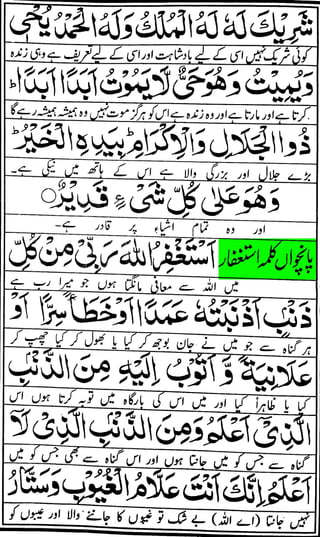 شَرِيْكَ لَهٗ لَهُ الْمُلْكُ وَلَهُ الْحَمْدُ يُحْيٖ
کوئی شریک نہیں اسی کے لیے بادشاہت اور اسی کے لیے تعریف ہے وہی زندہ
وَيُمِيْتُ وَهُوَ حَىٌّ لَّا يَمُوْتُ اَبَدًا اَبَدًاؕ
کرتا ہے اور مارتا ہے اور وہ زندہ ہے اس کو ہرگز موت نہیں وہ ہمیشہ ہمیشہ رہے گا
ذُو الْجَلَالِ وَالْاِكْرَامِؕ بِيَدِهِ الْخَيْرُؕ
بڑے جلال اور بزرگی والا ہے اس کے ہاتھ میں نیکی ہے۔
وَهُوَ عَلٰى كُلِّ شَىْءٍ قَدِيْرٌ○
اور وہ تمام اشیاء پر قادر ہے۔
پانچواں کلمہ استغفار اَسْتَغْفِرُ اللهَ رَبِّىْ مِنْ كُلِّ
میں اللہ سے معافی مانگتا ہوں جو میرا رب ہے
ذَنْۢبٍ اَذْنَبْتُهٗ عَمَدًا اَوْ خَطَأً سِرًّا اَوْ
ہر گناہ سے جو میں نے جان بوجھ کر کیا یا بھول کر کیا چھپ کر
عَلَانِيَةً وَّ اَتُوْبُ اِلَيْهِ مِنَ الذَّنْۢبِ
کیا یا ظاہراً کیا اور میں اس کی بارگاہ میں توبہ کرتا ہوں اس
الَّذِىْ اَعْلَمُ وَمِنَ الذَّنْۢبِ الَّذِىْ لَا
گناہ سے جس کو میں جانتا ہوں اور اس گناہ سے بھی جس کو میں
اَعْلَمُ اِنَّكَ اَنْتَ عَلَّامُ الْغُيُوْبِ وَسَتَّارُ
نہیں جانتا (اے اللہ) بے شک تو غیبوں کا جاننے والا اور عیبوں کو